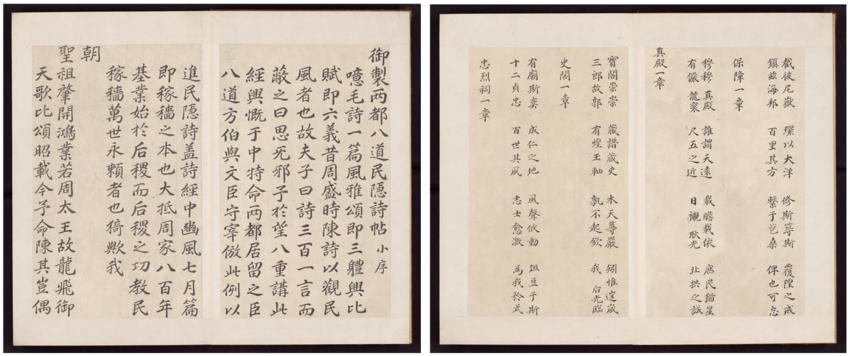 御製兩都八道民隱詩帖 小序
噫毛詩一篇風雅頌即三軆興比
賦即六義昔周盛時陳詩以觀民
風者也故夫子曰詩三百一言而
蔽之曰思旡邪予於望八重講此
經興慨于中特命兩都居留之臣
八道方伯與文臣守宰倣此例以
進民隱詩盖詩經中豳風七月篇
即稼穡之本也大抵周家八百年
基業始於后稷而后稷之功敎民
稼穡萬世永賴者也猗歟我
朝
聖祖肇開鴻業若周太王故龍飛御
天歌比頌昭載今予命陳其豈偶
截彼尼嶽 環以大洋 修斯 斯 覆隍之戒
鎭玆海邦 百里其方 繫于苞桑 俾也可忘
保障一章
穆穆真殿 誰謂天遠 載瞻載依 庶民猶星
有儼龍衮 尺五之近 日襯耿光 北拱之誠
真殿一章
寶閣崇崇 歲譜歲史 木天尊嚴 矧惟邃宬
三郞故郭 有煌玉軸 孰不起欽 我后光臨
史閣一章
有廟斯奕 成仁之地 風聲攸動 俎豆于斯
十二貞忠 百世其風 志士愈激 爲我矜式
忠烈祠一章